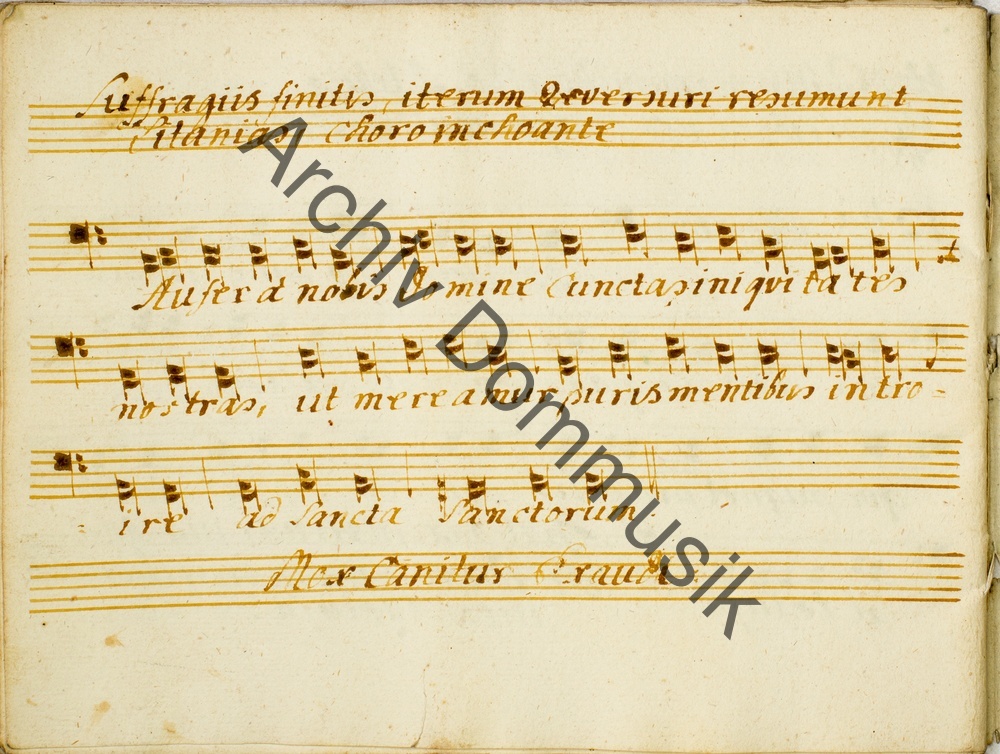 Suffragiis finitis, iterum Reversuri resumunt
Litanias, Choro inchoante
Aufer a nobis Domine Cunctas iniquitates
nostras, ut mereamur puris mentibus intro-
ire ad Sancta Sanctorum
Mox Canitur Exaudi
Archiv Dommusik